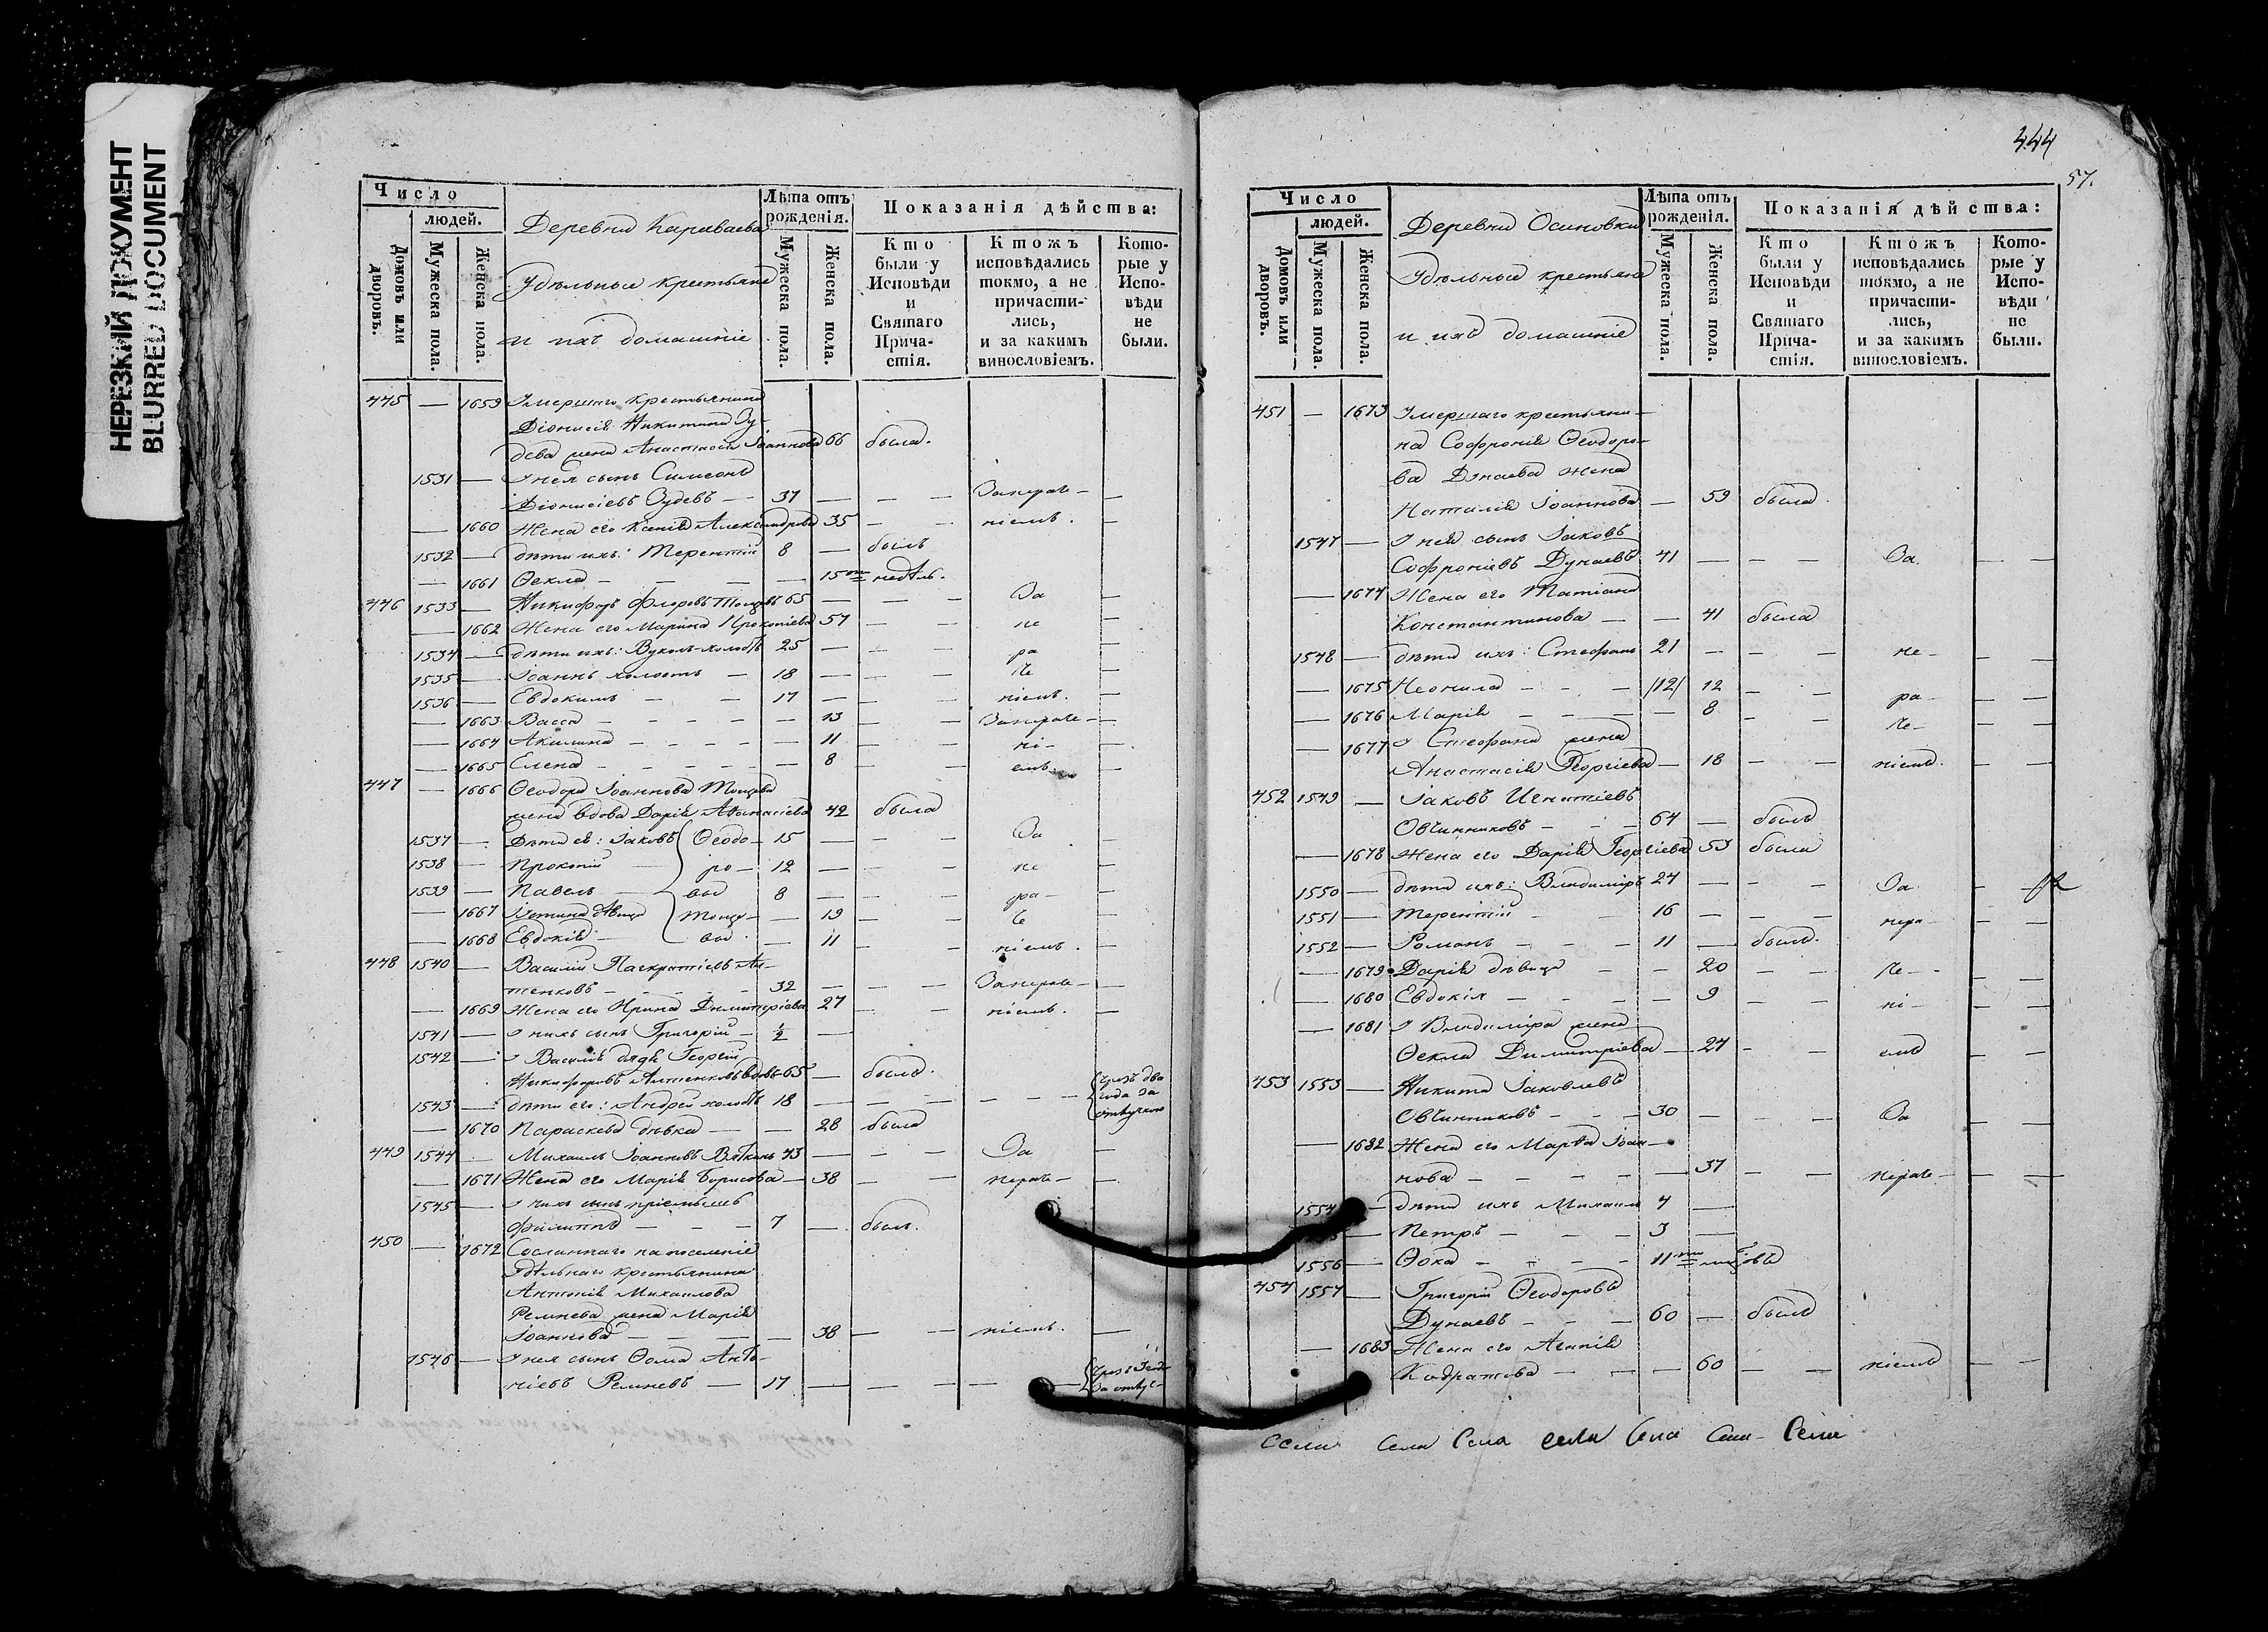 НЕРЕЗКИЙ ДОКУМЕНТ
BLURRED DOCUMENT
Число
людей.
Домовъ или дворовъ.
Мужеска пола.
Женска пола.
Деревни Караваева
Удѣльные крестьяне
и ихъ домашніе
Лѣта отъ рожденія.
Мужеска пола.
Женска пола.
Показанія дѣйства:
Кто были у Исповѣди и Святаго Причастія.
Ктожъ исповѣдались токмо, а не причастились, и за какимъ винословіемъ.
Которые у Исповѣди не были.
445 — 1659 Умершаго крестьянина
Діонисія Никитина Зу-
дева жена Анастасія Іоаннова 66 была.
1531 — У нея сынъ Симеонъ
Діонисіевъ Зудевъ — 37 — — — Занераче- —
— 1660 Жена его Ксенія Александрова 35 — — ніемъ. —
1532 — дѣти ихъ: Терентій 8 — былъ
— 1661 Ѳекла — — — — 15ти недѣль.
446 1533 — Никифоръ Флоровъ 65 — — — За —
— 1662 Жена его Марина Прокопіева 57 — — не —
1534 — дѣти ихъ: Вуколъ холостъ 25 — — — ра —
1535 — Іоаннъ холостъ — 18 — — — че —
1536 — Евдокимъ — — 17 — — — ніемъ. —
— 1663 Васса — — — — — 13 — — Занераче- —
— 1664 Акилина — — — — — 11 — — ні- —
— 1665 Елена — — — — — 8 — — емъ. —
447 — 1666 Ѳеодора Іоаннова
жена вдова Дарія Аѳанасіева 42 была
1537 — Дѣти ея: Іаковъ Ѳеодо- 15 — — — За —
1538 — Прокопій — ро- 12 — — — не —
1539 — Павелъ — вы 8 — — — ра- —
— 1667 Устина дѣвица — 19 — — че —
— 1668 Евдокія — вы — 11 — — ніемъ. —
448 1540 — Василій Панкратіевъ Ан-
тенковъ — — — — 32 — — — Занераче- —
— 1669 Жена его Ирина Димитріева 27 — — ніемъ. —
1541 — У нихъ сынъ Григорій — 1/2 —
1542 — У Василія дядя Георгій
Никифоровъ вдовъ 65 — былъ.
1543 — дѣти его: Андрей холостъ 18 — — — — — — чрезъ два года за отлучкою
— 1670 Параскева дѣвка — — 28 была
449 1544 — Михаилъ Іоанновъ 43 — — — За —
— 1671 Жена его Марія Борисова — 38 — — нераче- —
1545 — У нихъ сынъ пріемышъ
Филиппъ — — — 7 — былъ.
450 — 1672 Сосланнаго на поселеніе
Удѣльнаго крестьянина
Антонія Михаилова
Ремнева жена Марія
Іоаннова — — — — 38 — — ніемъ. —
1546 — У нея сынъ Ѳома Анто-
ніевъ Ремневъ — 17 — — — —
444
57.
Число
людей.
Домовъ или дворовъ.
Мужеска пола.
Женска пола.
Деревни Осиновки
Удѣльные крестьяне
и ихъ домашніе
Лѣта отъ рожденія.
Мужеска пола.
Женска пола.
Показанія дѣйства:
Кто были у Исповѣди и Святаго Причастія.
Ктожъ исповѣдались токмо, а не причастились, и за какимъ винословіемъ.
Которые у Исповѣди не были.
451 — 1673 Умершаго крестьяни-
на Софронія Ѳеодоро-
ва Дунаева жена
Наталія Іоаннова — 59 была.
1547 — У нея сынъ Іаковъ
Софроніевъ Дунаевъ 41 — — — За. — —
— 1674 Жена его Татіана
Константинова — — 41 была
1548 — дѣти ихъ: Стефанъ 21 — — — не- — —
— 1675 Неонила — — — /12/ 12 — — ра- — —
— 1676 Марія — — — — 8 — — че- — —
— 1677 У Стефана жена
Анастасія Георгіева — 18 — — ніемъ. — —
452 1549 — Іаковъ Игнатіевъ
Овчинниковъ — — 64 — былъ
— 1678 Жена его Дарія Георгіева 53 была
1550 — дѣти ихъ: Владиміръ 24 — — — За. — —
1551 — Терентій — — 16 — — — нера- — —
1552 — Романъ — — — 11 — былъ.
— 1679 Дарія дѣвица — — 20 — — че- — —
— 1680 Евдокія — — — — 9 — — ні- — —
— 1681 У Владиміра жена
Ѳекла Димитріева — 24 — — емъ — —
453 1553 — Никита Іаковлевъ
Овчинниковъ — — — 30 — — — За — —
— 1682 Жена его Марѳа Іоан-
нова — — — — — 37 — — нераче- — —
1554 — дѣти ихъ Михаилъ 4 —
— Петръ — — — 3 —
1556 — Ѳока — — — — 11ти мѣсяцовъ
454 1557 — Григорій Ѳеодоровъ
Дунаевъ — — — 60 — былъ
— 1683 Жена его Агапія
Кодратова — — — 60 — — ніемъ — —
Сели Села Села сели Села Сели- Сели